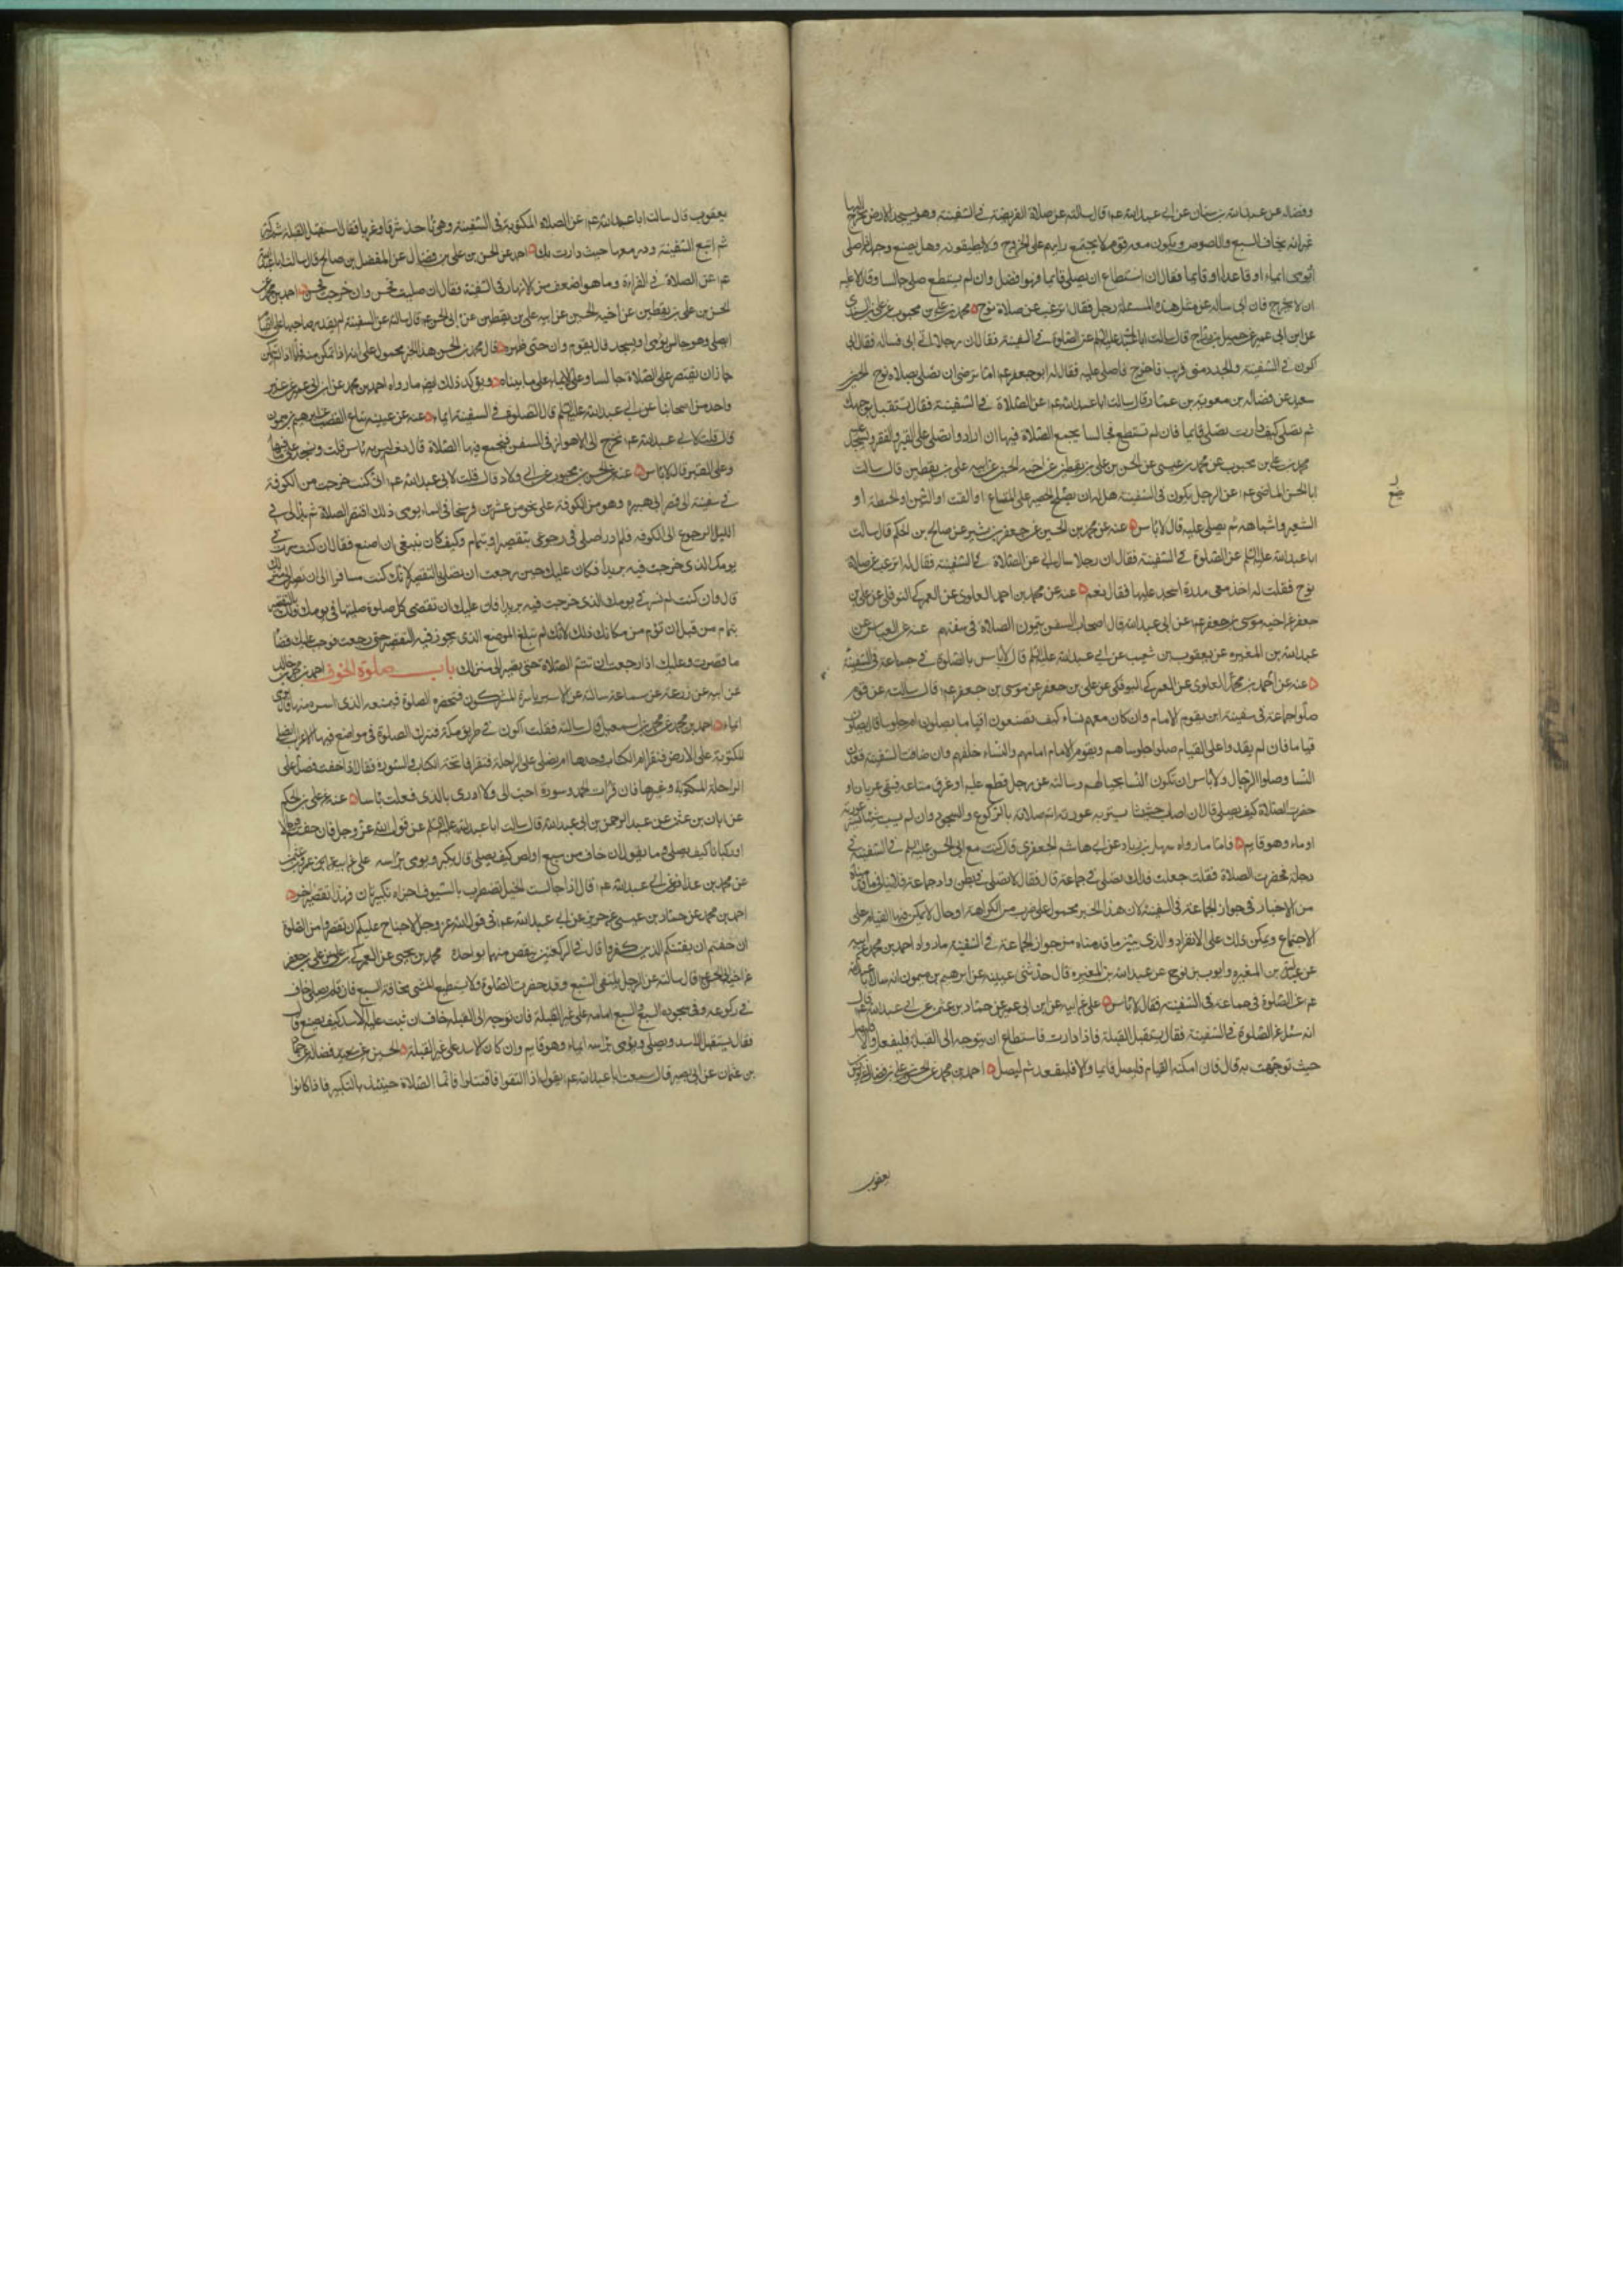 وفضاله عن عبدالله بن سنان عن ابى عبدالله عم قال سالته عن صلاة الفريضة فى السفينة وهو يجد الارض يخرج اليها
غير انه يخاف السبع واللصوص ويكون معه قوم لا يجتمع رايهم على الخروج ولا يطيعونه وهل يضع وجهه اذا صلى
او يومى ايماء او قاعدا او قايما فقال ان استطاع ان يصلى قايما فهو افضل وان لم يستطع صلى جالسا وقال لا عليه
ان لا يخرج فان ابى ساله عن مثل هذه المسئلة رجل فقال اترغب عن صلاة نوح محمد بن على بن محبوب عن على بن السندى
عن ابن ابى عمير عن جميل بن دراج قال سالت ابا عبدالله عليه السلم عن الصلوة فى السفينة فقال ان رجلا اتى ابى فساله فقال انى
اكون فى السفينة والجدد منى قريب فاخرج فاصلى عليه فقال له ابو جعفر عم اما ترضى ان تصلى بصلاة نوح الحسين بن
سعيد عن فضاله بن معوية بن عمار قال سالت ابا عبدالله عم عن الصلاة فى السفينة فقال تستقبل بوجهك
ثم تصلى كيف دارت تصلى قايما فان لم تستطع فجالسا يجمع الصلاة فيها ان اراد وا تصلى على القير والقفر وتسجد عليه
محمد بن على بن محبوب عن محمد بن عيسى عن الحسن بن على بن يقطين عن اخيه الحسين عن ابيه على بن يقطين قال سالت
ابا الحسن الماضى عم عن الرجل يكون فى السفينة هل له ان يضع الحصير على المتاع او القت او التبن او الحنطة او
الشعير واشباهه ثم يصلى عليه قال لا باس عنه عن محمد بن الحسين عن جعفر بن بشير عن صالح بن الحكم قال سالت
ابا عبدالله عليه السلم عن الصلوة فى السفينة فقال ان رجلا سال ابى عن الصلاة فى السفينة فقال له اترغب عن صلاة
نوح فقلت له اخذ معى مدرة اسجد عليها فقال نعم عنه عن محمد بن احمد العلوى عن العمركى النوفلى عن على بن
جعفر عن اخيه موسى بن جعفر عم عن ابى عبدالله قال اصحاب السفن يتمون الصلاة فى سفنهم عنه عن العباس عن
عبدالله بن المغيره عن يعقوب بن شعيب عن ابى عبدالله عليه السلم قال لا باس بالصلوة فى جماعة فى السفينة
عنه عن احمد بن محمد العلوى عن العمركى البوفكى عن على بن جعفر عن موسى بن جعفر عم قال سالته عن قوم
صلوا جماعة فى سفينة اين يقوم الامام وان كان معهم نساء كيف يصنعون اقياما يصلون ام جلوسا قال يصلون
قياما فان لم يقدروا على القيام صلوا جلوسا هم ويقوم الامام امامهم والنساء خلفهم وان ضاقت السفينة قعدن
النسا وصلوا الرجال ولا باس ان تكون النسا بحيالهم وسالته عن رجل قطع عليه او غرق متاعه فبقى عريانا و
حضرت الصلاة كيف يصلى قال ان اصاب حشيشا يستر به عورته اتم صلاته بالركوع والسجود وان لم يصب شيئا يستر به عورته
اوما وهو قايم فاما ما رواه سهل بن زياد عن ابى هاشم الجعفرى قال كنت مع ابى الحسن عليه السلم فى السفينة فى
دجلة فحضرت الصلاة فقلت جعلت فداك نصلى فى جماعة قال فقال لا نصلى فى بطن واد جماعة فلا ينافى ما قدمناه
من الاخبار فى جواز الجماعة فى السفينة لان هذا الخبر محمول على ضرب من الكراهة او حال لا يمكن فيها القيام على
الاجتماع ويمكن ذلك على الانفراد والذى يبين ما قدمناه من جواز الجماعة فى السفينة ما رواه احمد بن محمد عن ابيه
عن عبدالله بن المغيره وايوب بن نوح عن عبدالله بن المغيره قال حدثنى عيينه عن ابرهيم بن ميمون انه سال ابا عبدالله
عم عن الصلوة فى جماعة فى السفينة فقال لا باس على عن ابيه عن ابن ابى عمير عن حماد بن عثمن عن ابى عبدالله عم قال
انه سئل عن الصلوة فى السفينة فقال يستقبل القبلة فاذا دارت فاستطاع ان يتوجه الى القبلة فليفعل والا فليصل
حيث توجهت به قال فان امكنه القيام فليصل قايما والا فليقعد ثم ليصل احمد بن محمد عن الحسن بن على بن فضال عن يونس بن
يعقوب
يعقوب قال سالت ابا عبدالله عم عن الصلاة المكتوبة فى السفينة وهى تاخذ شرقا وغربا فقال استقبل القبلة ثم كبر
ثم اتبع السفينة ودر معها حيث دارت بك احمد عن الحسن بن على بن فضال عن المفضل بن صالح قال سالت ابا عبدالله
عم عن الصلاة فى الفراة وما هو اضعف من الانهار فى السفينة فقال ان صليت فحسن وان خرجت فحسن احمد بن محمد عن
الحسن بن على بن يقطين عن اخيه الحسين عن ابيه على بن يقطين عن ابى الحسن عم قال سالته عن السفينة لم يقدر صاحبها على القيام
ايصلى وهو جالس يومى او يسجد قال يقوم وان حنى ظهره قال محمد بن الحسن هذا الخبر محمول على انه اذا تمكن منه فاما اذا لم يتمكن
جاز ان يقتصر على الصلاة جالسا وعلى الايماء على ما بيناه ويؤكد ذلك ايضا ما رواه احمد بن محمد عن ابن ابى عمير عن غير
واحد من اصحابنا عن ابى عبدالله عليه السلم قال الصلوة فى السفينة ايماء عنه عن عيينه بياع القصب عن ابرهيم بن ميمون
قال قلت لابى عبدالله عم نخرج الى الاهواز فى السفن فنجمع فيها الصلاة قال نعم ليس به باس قلت ونسجد على ما فيها
وعلى القير قال لا باس عنه عن الحسن بن محبوب عن ابى ولاد قال قلت لابى عبدالله عم انى كنت خرجت من الكوفة
فى سفينة الى قصر ابن هبيره وهو من الكوفة على نحو من عشرين فرسخا فى الماء يومى ذلك اقصر الصلاة ثم بدا لى فى
الليل الرجوع الى الكوفه فلم ادر اصلى فى رجوعى بتقصير او بتمام وكيف كان ينبغى ان اصنع فقال ان كنت سرت فى
يومك الذى خرجت فيه بريدا فكان عليك حين رجعت ان تصلى بالتقصير لانك كنت مسافرا الى ان تصير الى منزلك
قال وان كنت لم تسر فى يومك الذى خرجت فيه بريدا فان عليك ان تقضى كل صلوة صليتها فى يومك ذلك بالتقصير
بتمام من قبل ان تؤم من مكانك ذلك لانك لم تبلغ الموضع الذى يجوز فيه التقصير حتى رجعت فوجب عليك قضا
ما قصرت وعليك اذا رجعت ان تتم الصلاة حتى تصير الى منزلك باب صلوة الخوف احمد بن محمد بن خالد
عن ابيه عن زرعة عن سماعة سالته عن الاسير ياسره المشركون فتحضره الصلوة فيمنعه الذى اسره منها قال يومى
ايماء احمد بن محمد عن محمد بن اسمعيل قال سالته فقلت اكون فى طريق مكة فننزل للصلوة فى مواضع فيها الاعراب ايصلى
المكتوبة على الارض فنقرا ام الكتاب وحدها ام نصلى على الراحلة فنقرا فاتحة الكتاب والسورة فقال اذا خفت فصل على
الراحلة المكتوبة وغيرها فان قرات الحمد وسورة احب الى ولا ارى بالذى فعلت باسا عنه عن على بن الحكم
عن ابان بن عثمن عن عبد الرحمن بن ابى عبدالله قال سالت ابا عبدالله عليه السلم عن قول الله عز وجل فان خفتم فرجالا
او ركبانا كيف يصلى وما يقول ان خاف من سبع او لص كيف يصلى قال يكبر ويومى براسه على عن ابيه عن
عن محمد بن عذافر عن ابى عبدالله عم قال اذا جالت الخيل تضطرب بالسيوف اجزاه تكبيرتان فهذا تقصير اخر
احمد بن محمد عن حماد بن عيسى عن حريز عن ابى عبدالله عم فى قول الله عز وجل لا جناح عليكم ان تقصروا من الصلوة
ان خفتم ان يفتنكم الذين كفروا قال فى الركعتين ينقص منهما بواحدة محمد بن يحيى عن العمركى بن على عن على بن جعفر
عن اخيه ابى الحسن عم قال سالته عن الرجل يلتقى السبع وقد حضرت الصلوة ولا يستطيع المشى مخافة السبع فان قام يصلى خاف
فى ركوعه وفى سجوده السبع والسبع امامه على غير القبلة فان توجه الى القبله خاف ان يثب عليه الاسد كيف يصنع قال
فقال يستقبل الاسد ويصلى ويومى براسه ايماء وهو قايم وان كان الاسد على غير القبلة الحسين بن سعيد عن فضاله عن حماد
بن عثمان عن ابى بصير قال سمعت ابا عبدالله عم يقول اذا التقوا فاقتتلوا فانما الصلاة حينئذ بالتكبير فاذا كانوا